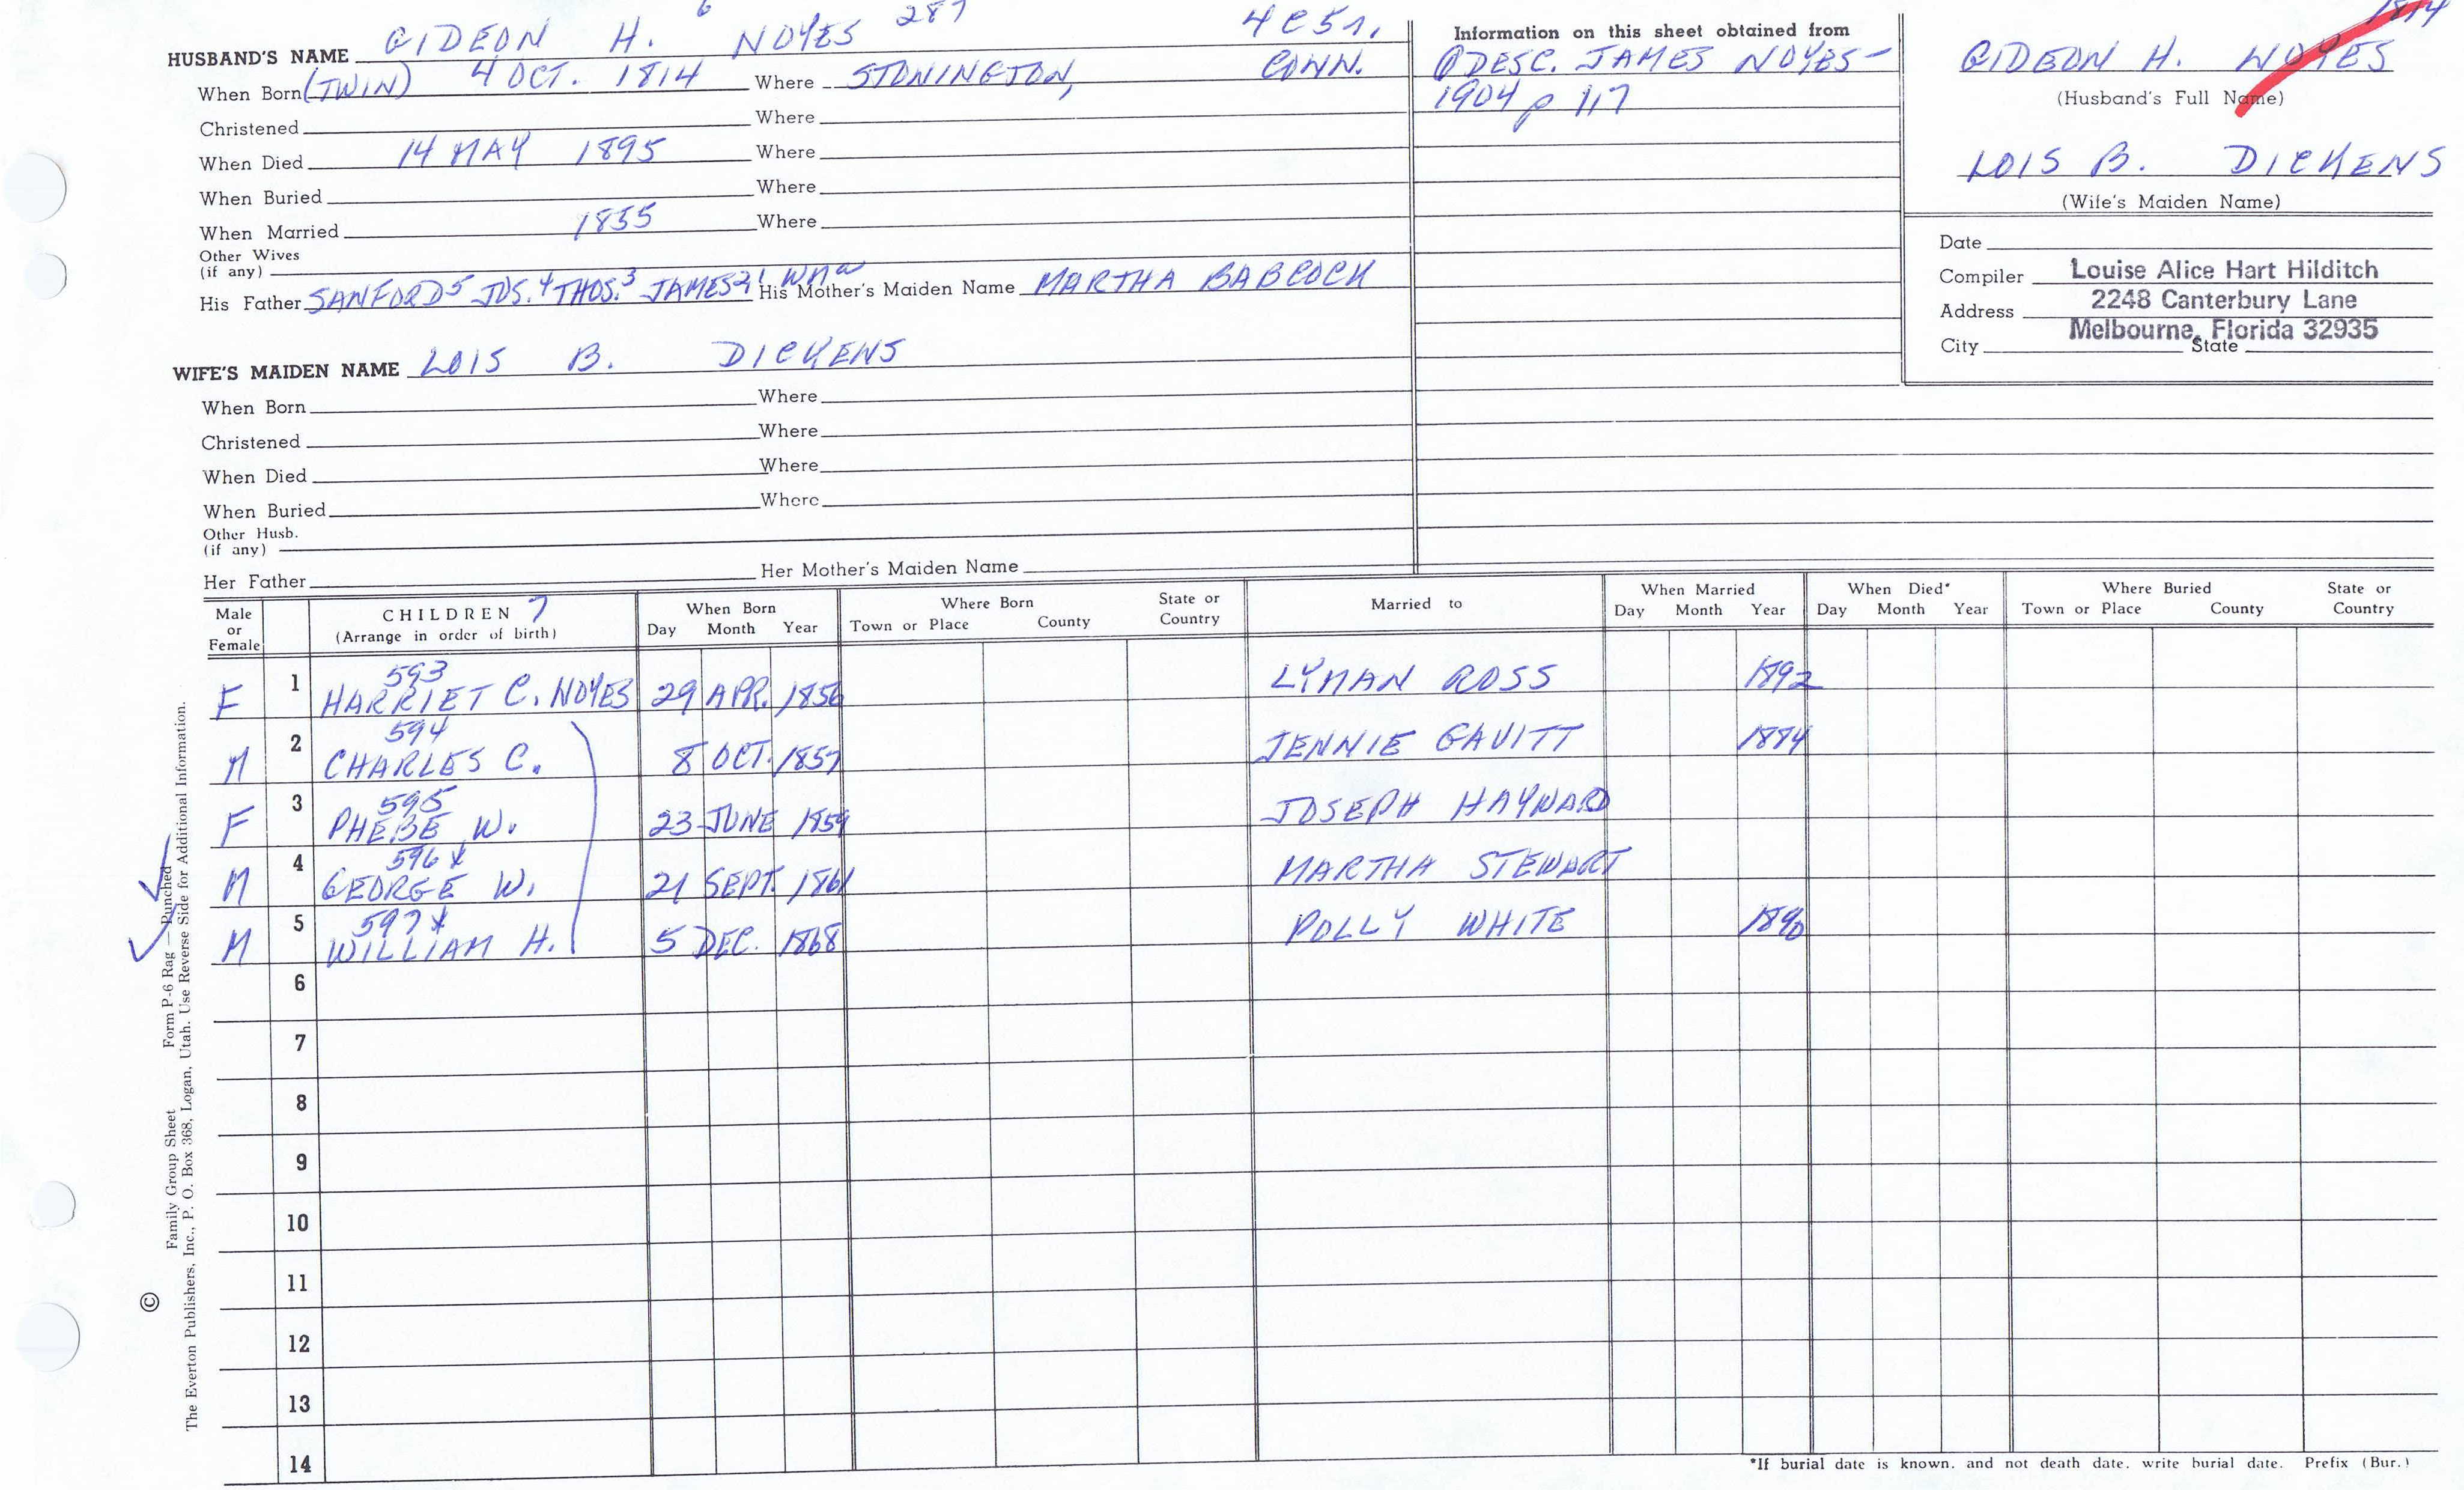 6 287 4C5r, 1814
HUSBAND'S NAME GIDEON H. NOYES
When Born (TWIN) 4 OCT. 1814 Where STONINGTON, CONN.
Christened Where
When Died 14 MAY 1895 Where
When Buried Where
When Married 1855 Where
Other Wives
(if any)
His Father SANFORD5 JOS.4 THOS.3 JAMES2 1 Wm His Mother's Maiden Name MARTHA BABCOCK
WIFE'S MAIDEN NAME LOIS B. DICKENS
When Born Where
Christened Where
When Died Where
When Buried Where
Other Husb.
(if any)
Her Father Her Mother's Maiden Name
Information on this sheet obtained from
DESC. JAMES NOYES-
1904 p 117
GIDEON H. NOYES
(Husband's Full Name)
LOIS B. DICKENS
(Wife's Maiden Name)
Date
Compiler Louise Alice Hart Hilditch
Address 2248 Canterbury Lane
Melbourne, Florida 32935
City State
Male or Female CHILDREN 7 (Arrange in order of birth) When Born Day Month Year Where Born Town or Place County State or Country Married to When Married Day Month Year When Died* Day Month Year Where Buried Town or Place County State or Country
593
F 1 HARRIET C. NOYES 29 APR. 1856 LYMAN ROSS 1892
594
M 2 CHARLES C. 8 OCT. 1857 JENNIE GAVITT 1884
595
F 3 PHEBE W. 23 JUNE 1859 JOSEPH HAYWARD
596
M 4 GEORGE W. 21 SEPT. 1861 MARTHA STEWART
597
M 5 WILLIAM H. 5 DEC. 1868 POLLY WHITE 1890
6
7
8
9
10
11
12
13
14
*If burial date is known, and not death date, write burial date. Prefix (Bur.)
Family Group Sheet Form P-6 Rag — Punched
© The Everton Publishers, Inc., P. O. Box 368, Logan, Utah. Use Reverse Side for Additional Information.